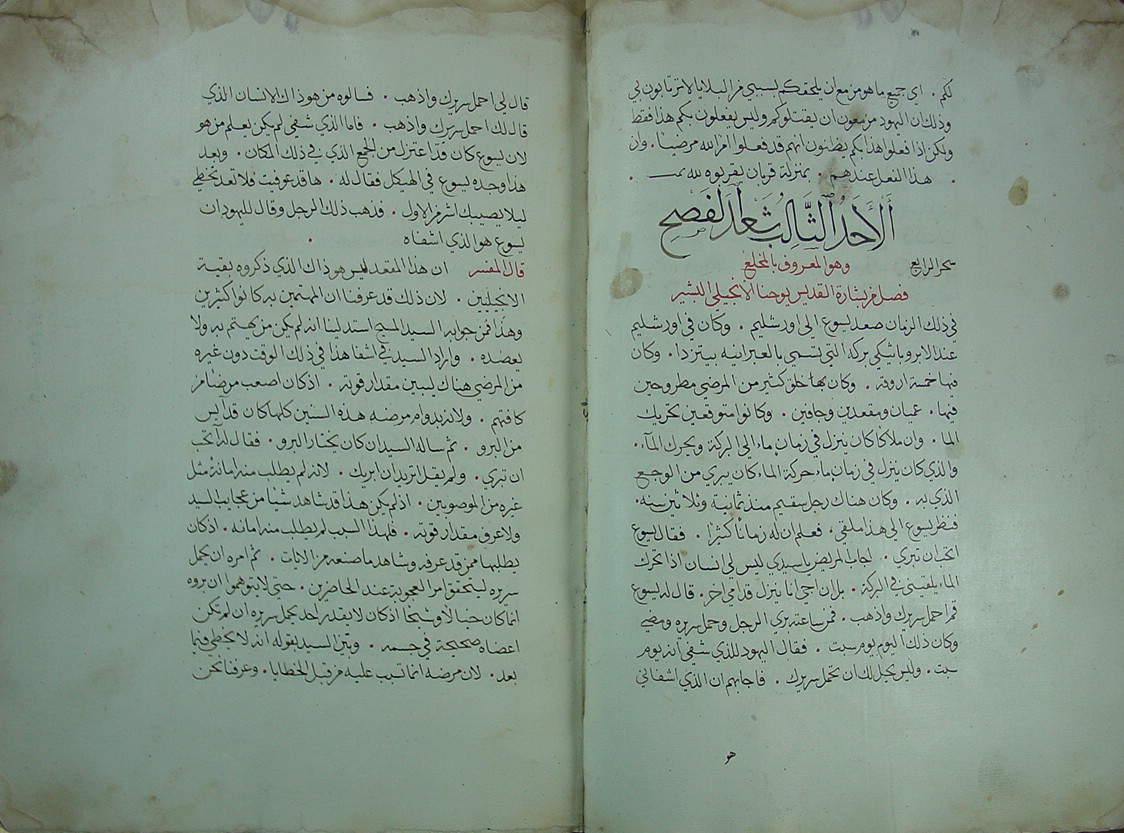 لكم . اي جميع ما هو مزمع ان يلحقكم بسببي من البلايا لا ترتابون بي
وذلك ان اليهود مزمعون ان يقتلوكم وليس يفعلون بكم هذا فقط
ولكن اذا فعلوا هذا بكم يظنون انهم قد فعلوا امر الله مرضيا . وان
. هذا الفعل عندهم . بمنزلة قربان يقربوه لله تمت .
اَلأَحَدُ الثَّالِث بَعْد الفصح
سحر الرابع وهو المعروف بالمخلع
فصل من بشارة القديس يوحنا الانجيلي البشير
في ذلك الزمان صعد ليسوع الي اورشليم . وكان في اورشليم
عند الابروباطيكي بركة التي تسمي بالعبرانيه بيتزدا . وكان
فيها خمسة اروقة . وكان بها خلق كثير من المرضي مطروحين
فيها . عميان ومقعدين وجافين . وكانوا متوقعين تحريك
الما . وان ملاكا كان ينزل في زمان ما، الى البركة ويحرك المآء .
والذي كان ينزل في زمان ما، حركة الماء كان يبري من الوجع
الذي به . وكان هناك رجل سقيم منذ ثمانية وثلاثين سنه .
فنظر يسوع الي هذا ملقي . فعلم ان له زمانًا كثيرًا . فقال ليسوع
اتحب ان تبري . اجاب المريض يا سيدي ليس لي انسان اذا تحرك
الماء يلقيني في البركة . بل ان اجي انا ينزل قدامي اخر . قال له ليسوع
قم احمل سريرك واذهب . فمن ساعته بري الرجل وحمل سريره ومضي
وكان ذلك اليوم يوم سبت . فقال اليهود للذي شفي انه يوم
سبت . وليس يحل لك ان تحمل سريرك . فاجابهم ان الذي اشفاني
هو
قال لي احمل سريرك واذهب . فسالوه من هو ذاك الانسان الذي
قال لك احمل سريرك واذهب . فاما الذي شفي لم يكن يعلم من هو
لان ليسوع كان قد اعتزل من الجمع الذي في ذلك المكان . وبعد
هذا وجده ليسوع في الهيكل فقال له . ها قد عوفيت فلا تعد تخطي
ليلا يصيبك اشر من الاول . فذهب ذلك الرجل وقال لليهود ان
ليسوع هو الذي اشفاه .
قال المفسر ان هذا المقعد ليس هو ذاك الذي ذكروه بقية
الانجيليين . لان ذلك قد عرفنا ان المهتمين به كانوا كثيرين
وهذا فمن جوابه السيد المسيح استدلينا انه لم يكن من يهتم به ولا
يعضده . واراد السيد في اشفا هذا في ذلك الوقت دون غيره
من المرضي هناك ليبين مقدار قوته . اذ كان اصعب مرضًا من
كافتهم . ولانه بدوام مرضه هذه السنين كلها كان قد آيس
من البرو . ثم ساله السيد ان كان يختار البرو . فقال له اتحب
ان تبري . ولم يقل اتريد ان ابريك . لانه لم يطلب منه امانة مثل
غيره من الموصوبين . اذ لم يكن هذا قد شاهد شيًا من عجايب السيد
ولا عرف مقدار قوته . فلهذا السبب لم يطلب منه امانه . اذ كان
يطلبها ممن قد عرفه وشاهد ما صنعه من الايات . ثم امره ان يحمل
سريره ليتحقق امر العجوبة عند الحاضرين . حتي لا يتوهموا ان بروه
انما كان خيالا وشبحًا اذ كان لا يقدر احد يحمل سريره ان لم يكن
اعضاه صحيحة في جسمه . وبَيّن السيد بقوله انه لا يخطي فيما
بعد . لان مرضه انما تسبب عليه من قبل الخطايا . وعرفنا نحن